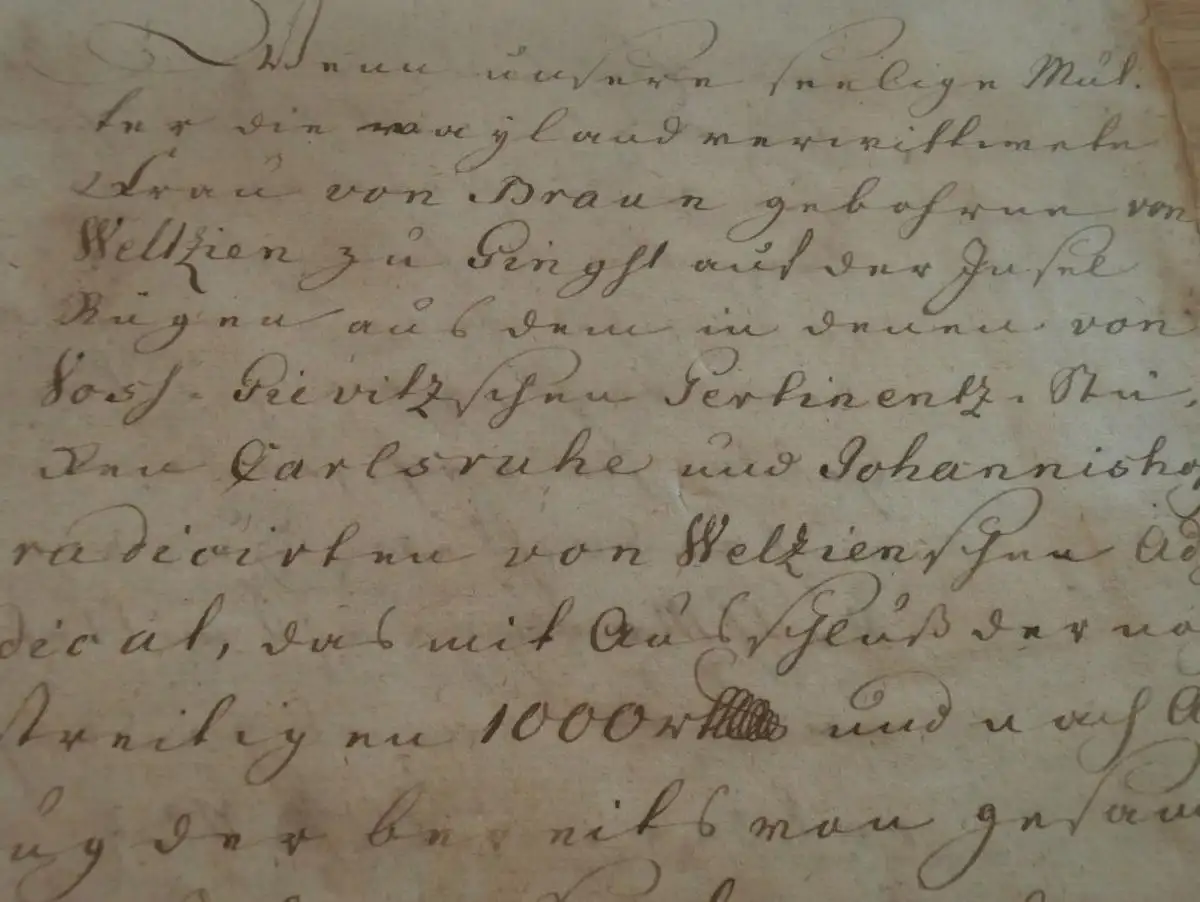 Wenn unsere seelige Mut-
ter die wayland verwittwete
Frau von Braun gebohrne von
Weltzien zu Gingst auf der Insel
Rügen aus dem in denen von
Voss-Gievitzschen Pertinentz-Stü-
cken Carlsruhe und Johannisho
radicirten von Weltzienschen Ad
dicat, das mit Ausschluß der no
streitigen 1000 r und nach A
ug der bereits von gesam